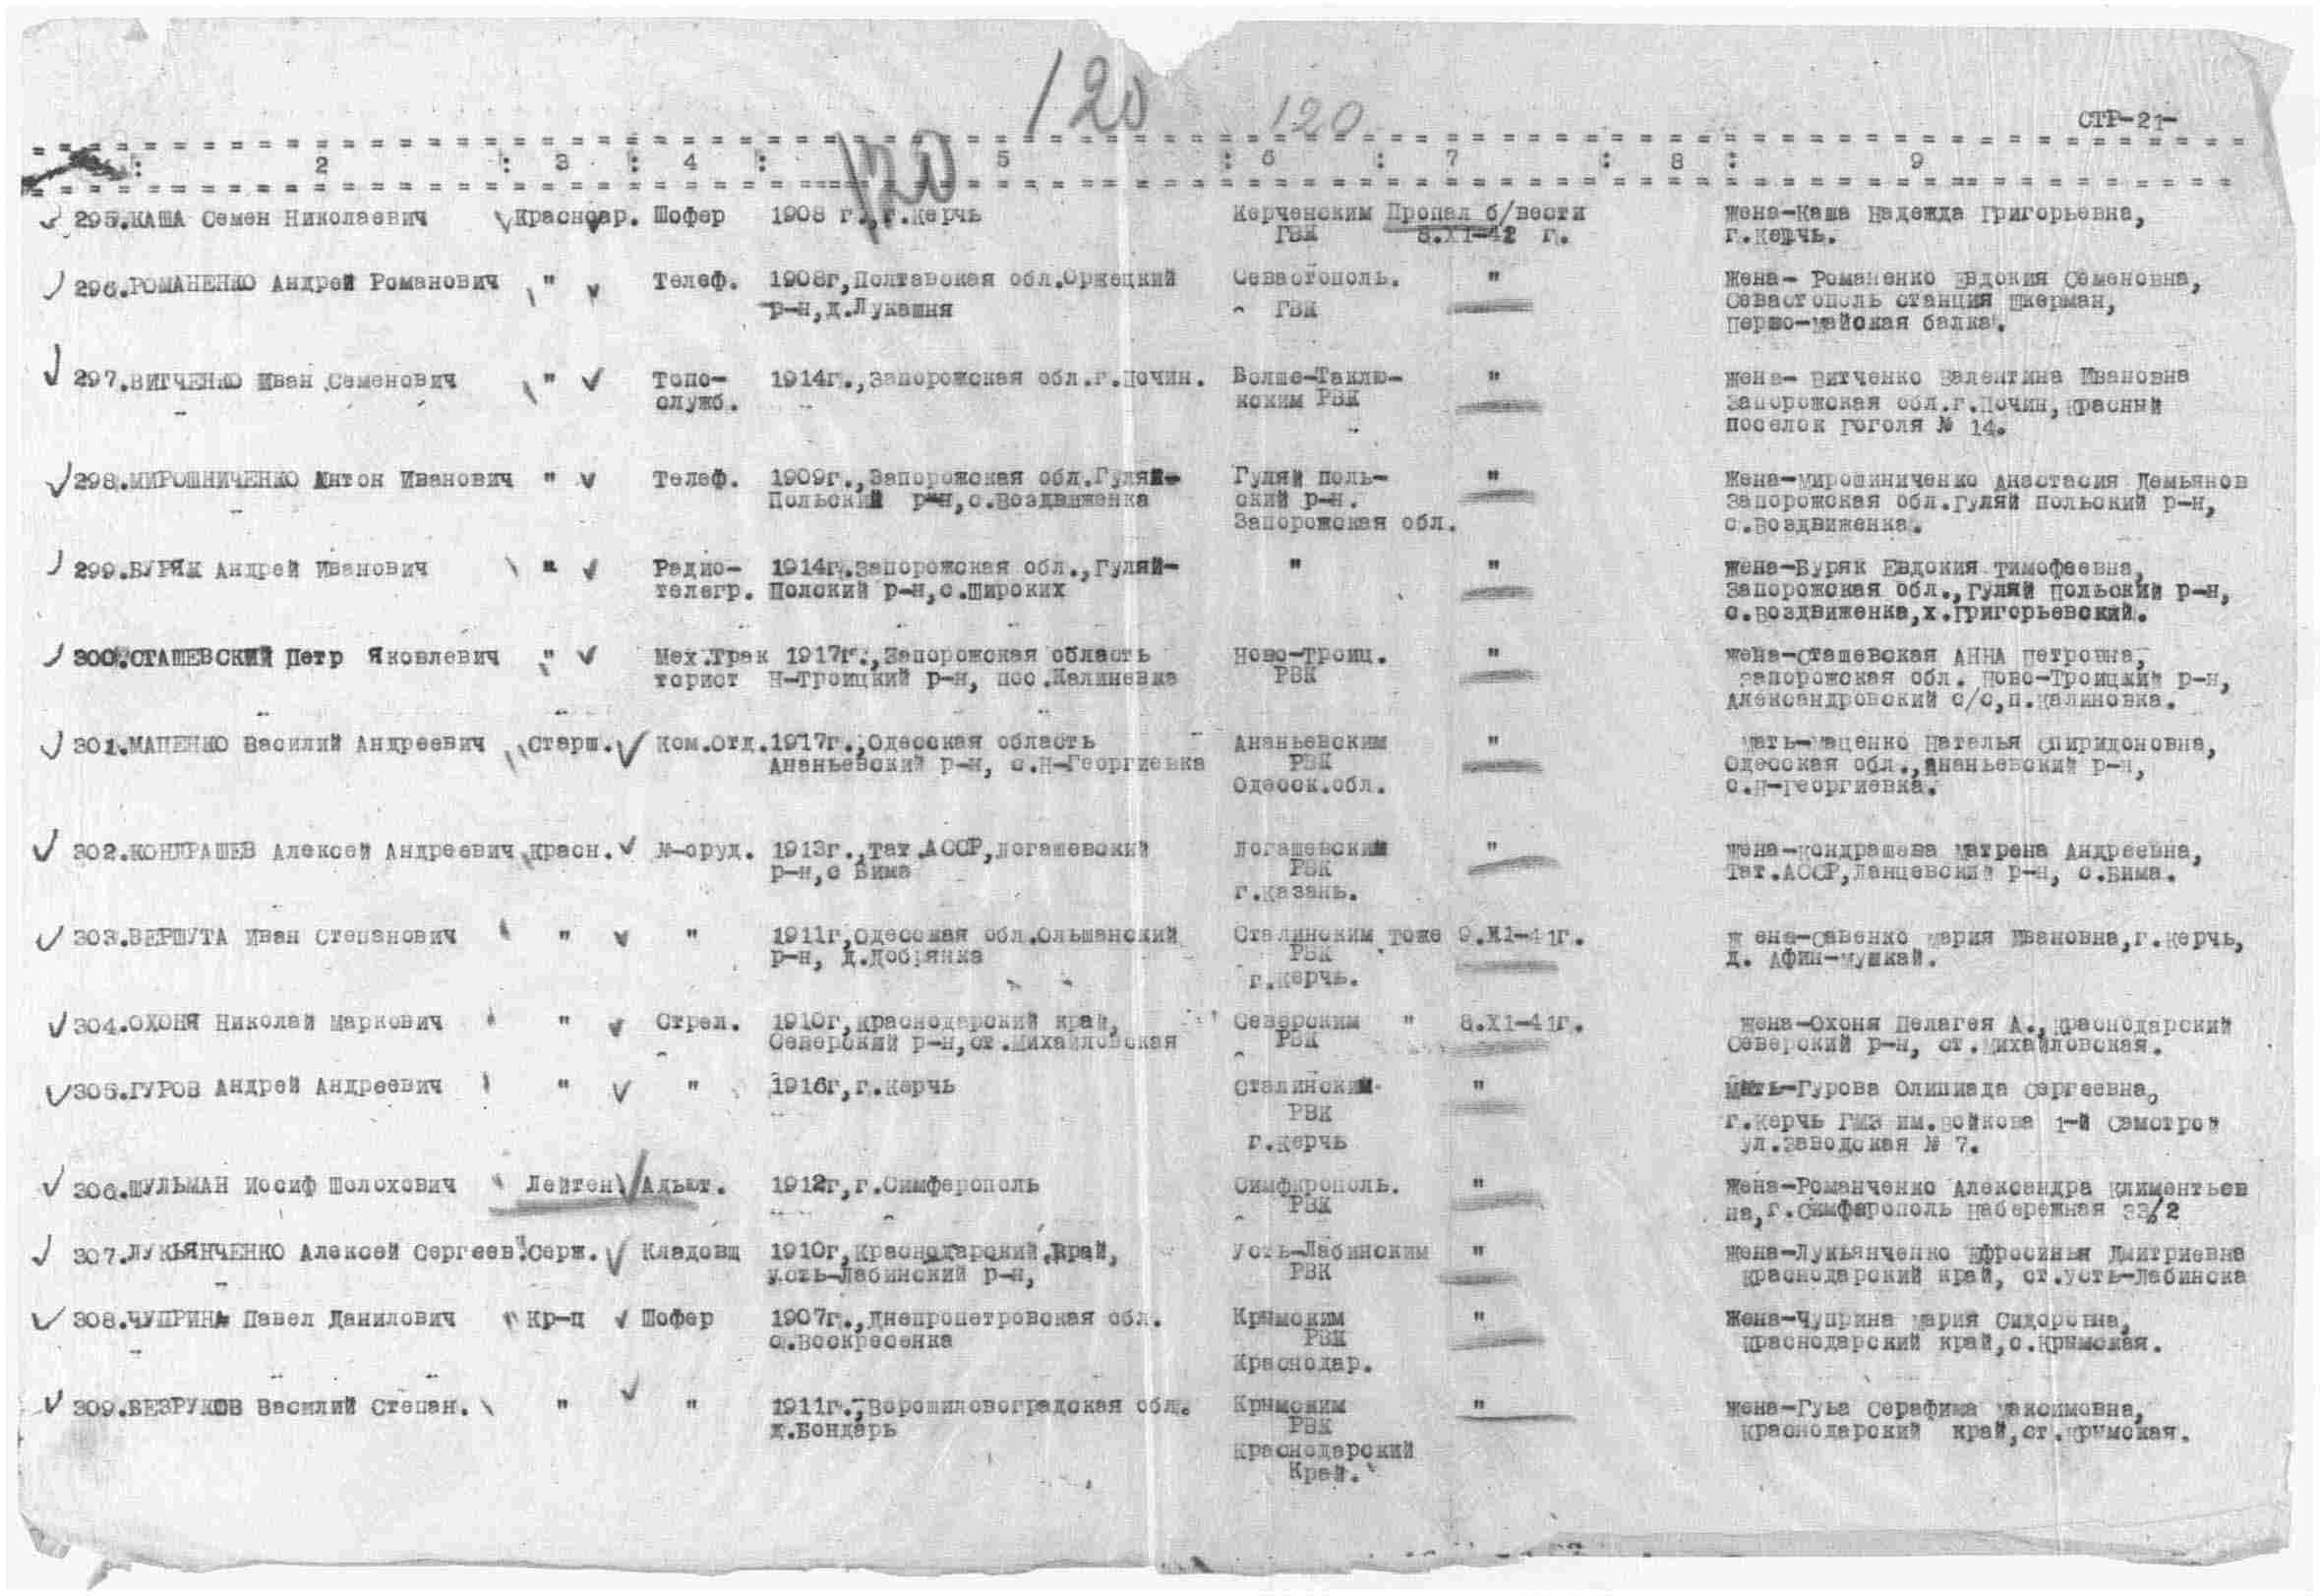 120
120
СТР-21-
120
2 : 3 : 4 : 5 : 6 : 7 : 8 : 9
295.КАША Семен Николаевич Красноар. Шофер 1908 г.,г.Керчь Керченским Пропал б/вести Жена-Каша Надежда Григорьевна,
ГВК 8.XI-42 г. г.Керчь.
296.РОМАНЕНКО Андрей Романович " Телеф. 1908г,Полтавская обл.Оржецкий Севастополь. " Жена- Романенко Евдокия Семеновна,
р-н,д.Лукашня ГВК Севастополь станция Шкерман,
Першо-майская балка.
297.ВИТЧЕНКО Иван Семенович " Топо- 1914г.,Запорожская обл.г.Почин. Волше-Таклю- " Жена- Витченко Валентина Ивановна
служб. кским РВК Запорожская обл.г.Почин,Красный
поселок Гоголя № 14.
298.МИРОШНИЧЕНКО Антон Иванович " Телеф. 1909г.,Запорожская обл.Гуляй- Гуляй поль- " Жена-Мирошиниченко Анастасия Демьянов
Польский р-н,с.Воздвиженка ский р-н. Запорожская обл.Гуляй Польский р-н,
Запорожская обл. с.Воздвиженка.
299.БУРЯК Андрей Иванович " Радио- 1914г.Запорожская обл.,Гуляй- " " Жена-Буряк Евдокия Тимофеевна,
телегр. Полский р-н,с.Широких Запорожская обл.,Гуляй Польский р-н,
с.Воздвиженка,х.Григорьевский.
300.СТАШЕВСКИЙ Петр Яковлевич " Мех.Трак 1917г.,Запорожская область Ново-Троиц. " Жена-Сташевская АННА Петровна,
торист Н-Троицкий р-н, пос.Калиневка РВК Запорожская обл. Ново-Троицкий р-н,
Александровский с/с,п.Калиновка.
301.МАЦЕНКО Василий Андреевич Старш. Ком.Отд. 1917г.,Одесская область Ананьевским " Мать-Маценко Наталья Спиридоновна,
Ананьевский р-н, с.Н-Георгиевка РВК Одесская обл.,Ананьевский р-н,
Одесск.обл. с.Н-Георгиевка.
302.КОНДРАШЕВ Алексей Андреевич Красн. №-оруд. 1913г.,Тат.АССР,Логашевский Логашевским " Жена-Кондрашева Матрена Андреевна,
р-н,с Бима РВК Тат.АССР,Ланцевский р-н, с.Бима.
г.Казань.
303.ВЕРШУТА Иван Степанович " " 1911г,Одесская обл.Ольшанский Сталинским тоже 9.XI-41г. Ж ена-Савенко Мария Ивановна,г.Керчь,
р-н, д.Добрянка РВК д. Афин-Мушкай.
г.Керчь.
304.ОХОНЯ Николай Маркович " Стрел. 1910г,Краснодарский край, Северским " 8.XI-41г. Жена-Охоня Пелагея А.,Краснодарский
Северский р-н,ст.Михайловская РВК Северский р-н, ст.Михайловская.
305.ГУРОВ Андрей Андреевич " " 1916г,г.Керчь Сталинским " Мать-Гурова Олипиада Сергеевна,
РВК г.Керчь ГМЗ им.Войкова 1-й Самотрой
г.Керчь ул.Заводская № 7.
306.ШУЛЬМАН Иосиф Шолохович Лейтен Адьют. 1912г,г.Симферополь Симфирополь. " Жена-Романченко Александра Климентьев
РВК на,г.Симферополь Набережная 33/2
307.ЛУКЬЯНЧЕНКО Алексей Сергеев. Серж. Кладовщ 1910г,Краснодарский край, Усть-Лабинским " Жена-Лукьянченко Ефросинья Дмитриевна
Усть-Лабинский р-н, РВК Краснодарский край, ст.Усть-Лабинска
308.ЧУПРИНА Павел Данилович Кр-ц Шофер 1907г.,Днепропетровская обл. Крымским " Жена-Чуприна Мария Сидоровна,
с.Воскресенка РВК Краснодарский край,с.Крымская.
Краснодар.
309.БЕЗРУКОВ Василий Степан. " " 1911г.,Ворошиловоградская обл. Крымским " Жена-Гуьа Серафима Максимовна,
ж.Бондарь РВК Краснодарский край,ст.Крымская.
Краснодарский
Край.